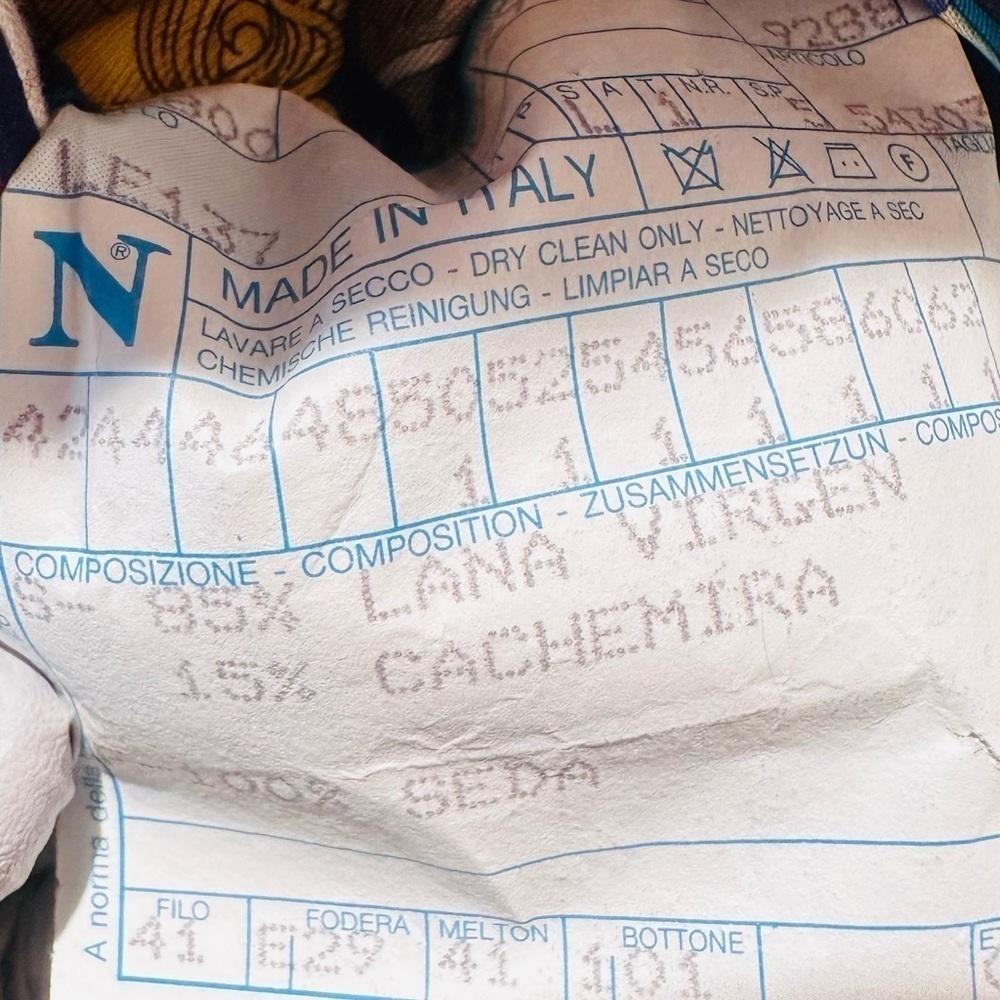 9288
ARTICOLO
S A T. N.R. S.P.
L 1 5 5A303
LE137
MADE IN ITALY
F
N®
LAVARE A SECCO - DRY CLEAN ONLY - NETTOYAGE A SEC
CHEMISCHE REINIGUNG - LIMPIAR A SECO
42 44 48 50 52 54 56 58 60 62
1 1 1 1 1 1 1
COMPOSIZIONE - COMPOSITION - ZUSAMMENSETZUN - COMPOS
S-- 85% LANA VIRGEN
15% CACHEMIRA
100% SEDA
A norma della
FILO FODERA MELTON BOTTONE E
41 E29 41 101